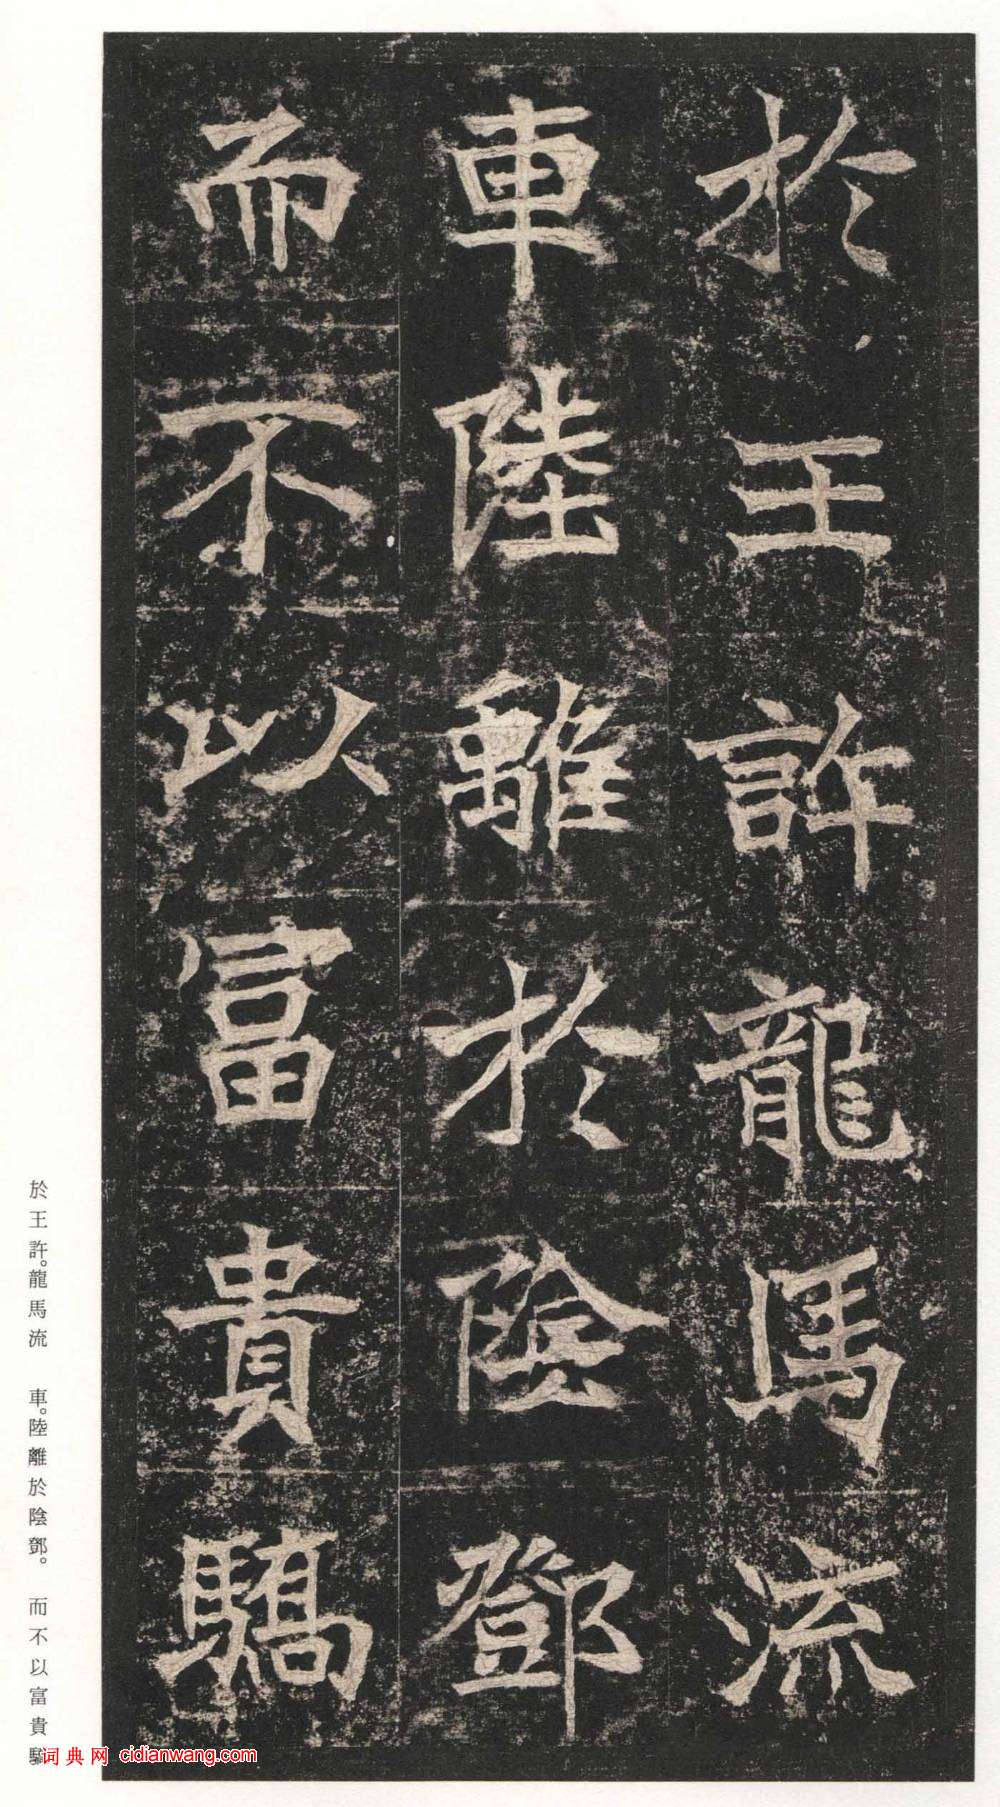 於王許龍馬流
車陸離於陰鄧
而不以富貴驕
於王許。龍馬流　車。陸離於陰鄧。　而不以富貴驕
词典网 cidianwang.com